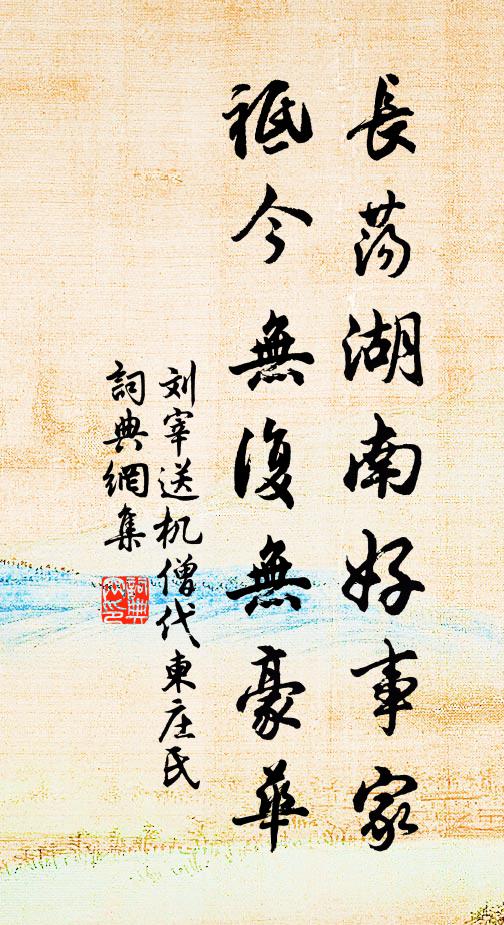 長荡湖南好事家
祗今無復無豪華
刘宰送机僧代東庄氏
詞典網集
詞典网印